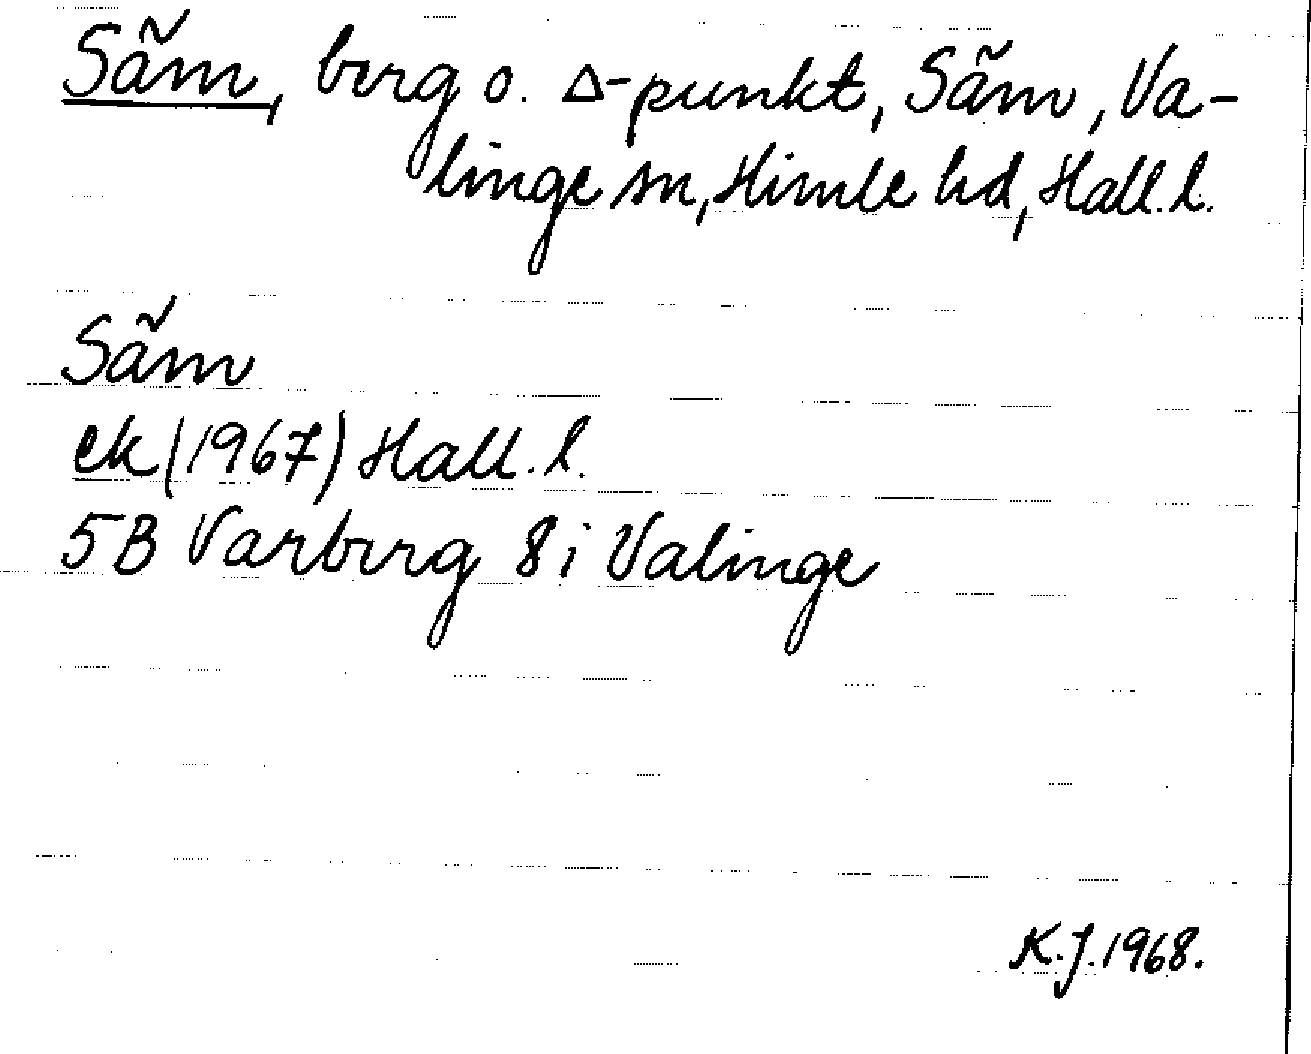 Sãm, berg o. Δ-punkt, Sãm, Va-
linge sn, Himle hd, Hall. l.
Sãm
ek (1967) Hall. l.
5B Varberg 8i Valinge
K.J. 1968.